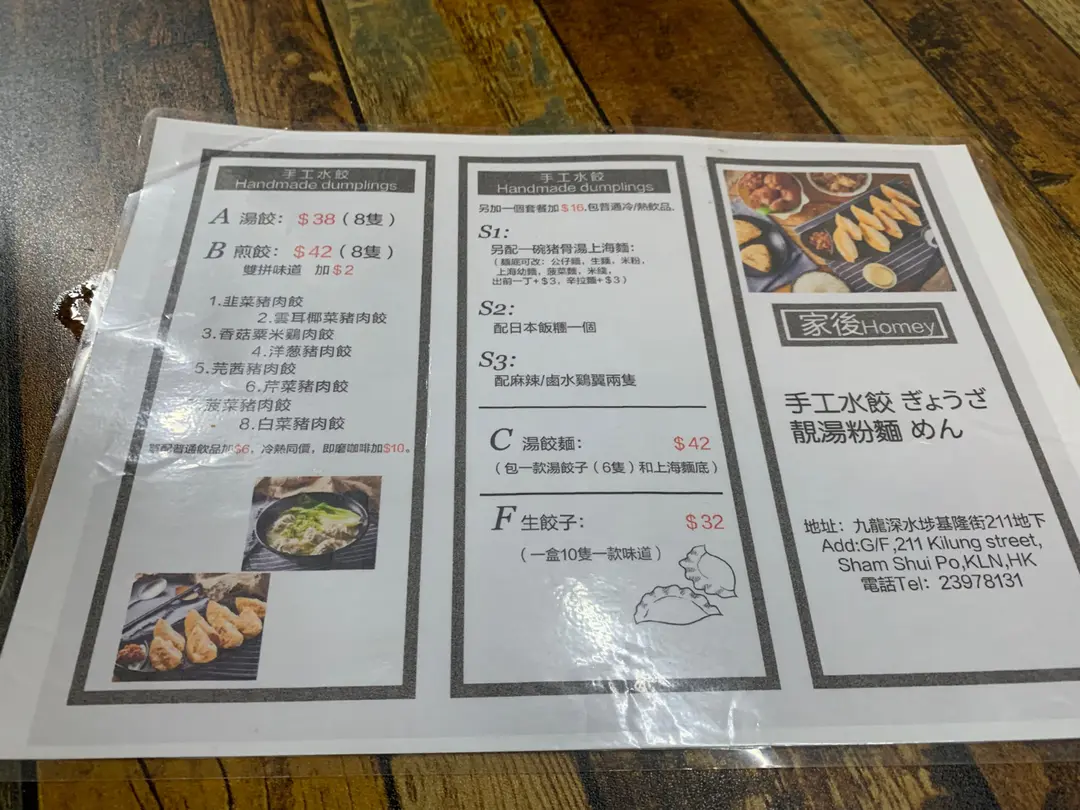 手工水餃
Handmade dumplings
A 湯餃：$38（8隻）
B 煎餃：$42（8隻）
雙拼味道 加$2
1.韭菜豬肉餃
2.雲耳椰菜豬肉餃
3.香菇粟米鷄肉餃
4.洋葱豬肉餃
5.芫茜豬肉餃
6.芹菜豬肉餃
菠菜豬肉餃
8.白菜豬肉餃
配普通飲品加$6，冷熱同價，即磨咖啡加$10。
手工水餃
Handmade dumplings
另加一個套餐加$16.包普通冷/熱飲品.
S1:
另配一碗豬骨湯上海麵：
（麵底可改：公仔麵，生麵，米粉，
上海幼麵，菠菜麵，米線，
出前一丁+$3，辛拉麵+$3）
S2:
配日本飯糰一個
S3:
配麻辣/鹵水鷄翼兩隻
C 湯餃麵： $42
（包一款湯餃子（6隻）和上海麵底）
F 生餃子： $32
（一盒10隻一款味道）
家後Homey
手工水餃 ぎょうざ
靚湯粉麵 めん
地址：九龍深水埗基隆街211地下
Add:G/F,211 Kilung street,
Sham Shui Po,KLN,HK
電話Tel：23978131